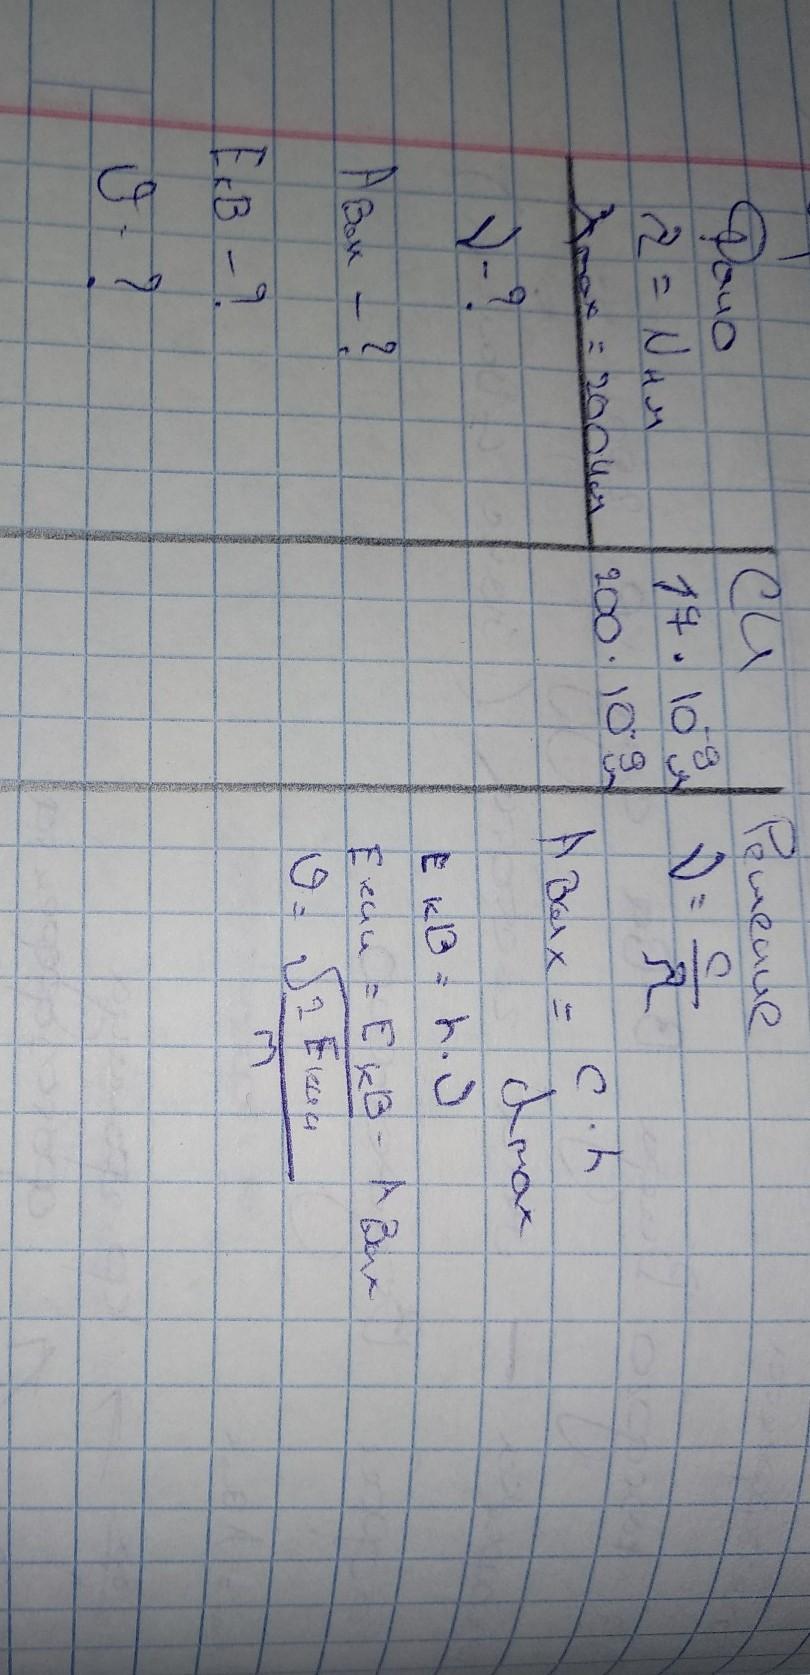 Дано
λ = N нм
λmax = 200 нм
ν - ?
A вых - ?
E кв - ?
υ - ?
СИ
17 · 10⁻⁹ м
200 · 10⁻⁹ м
Решение
ν = c/λ
A вых = c · h / λmax
E кв = h · ν
E кин = E кв - A вых
υ = √2 E кин / m